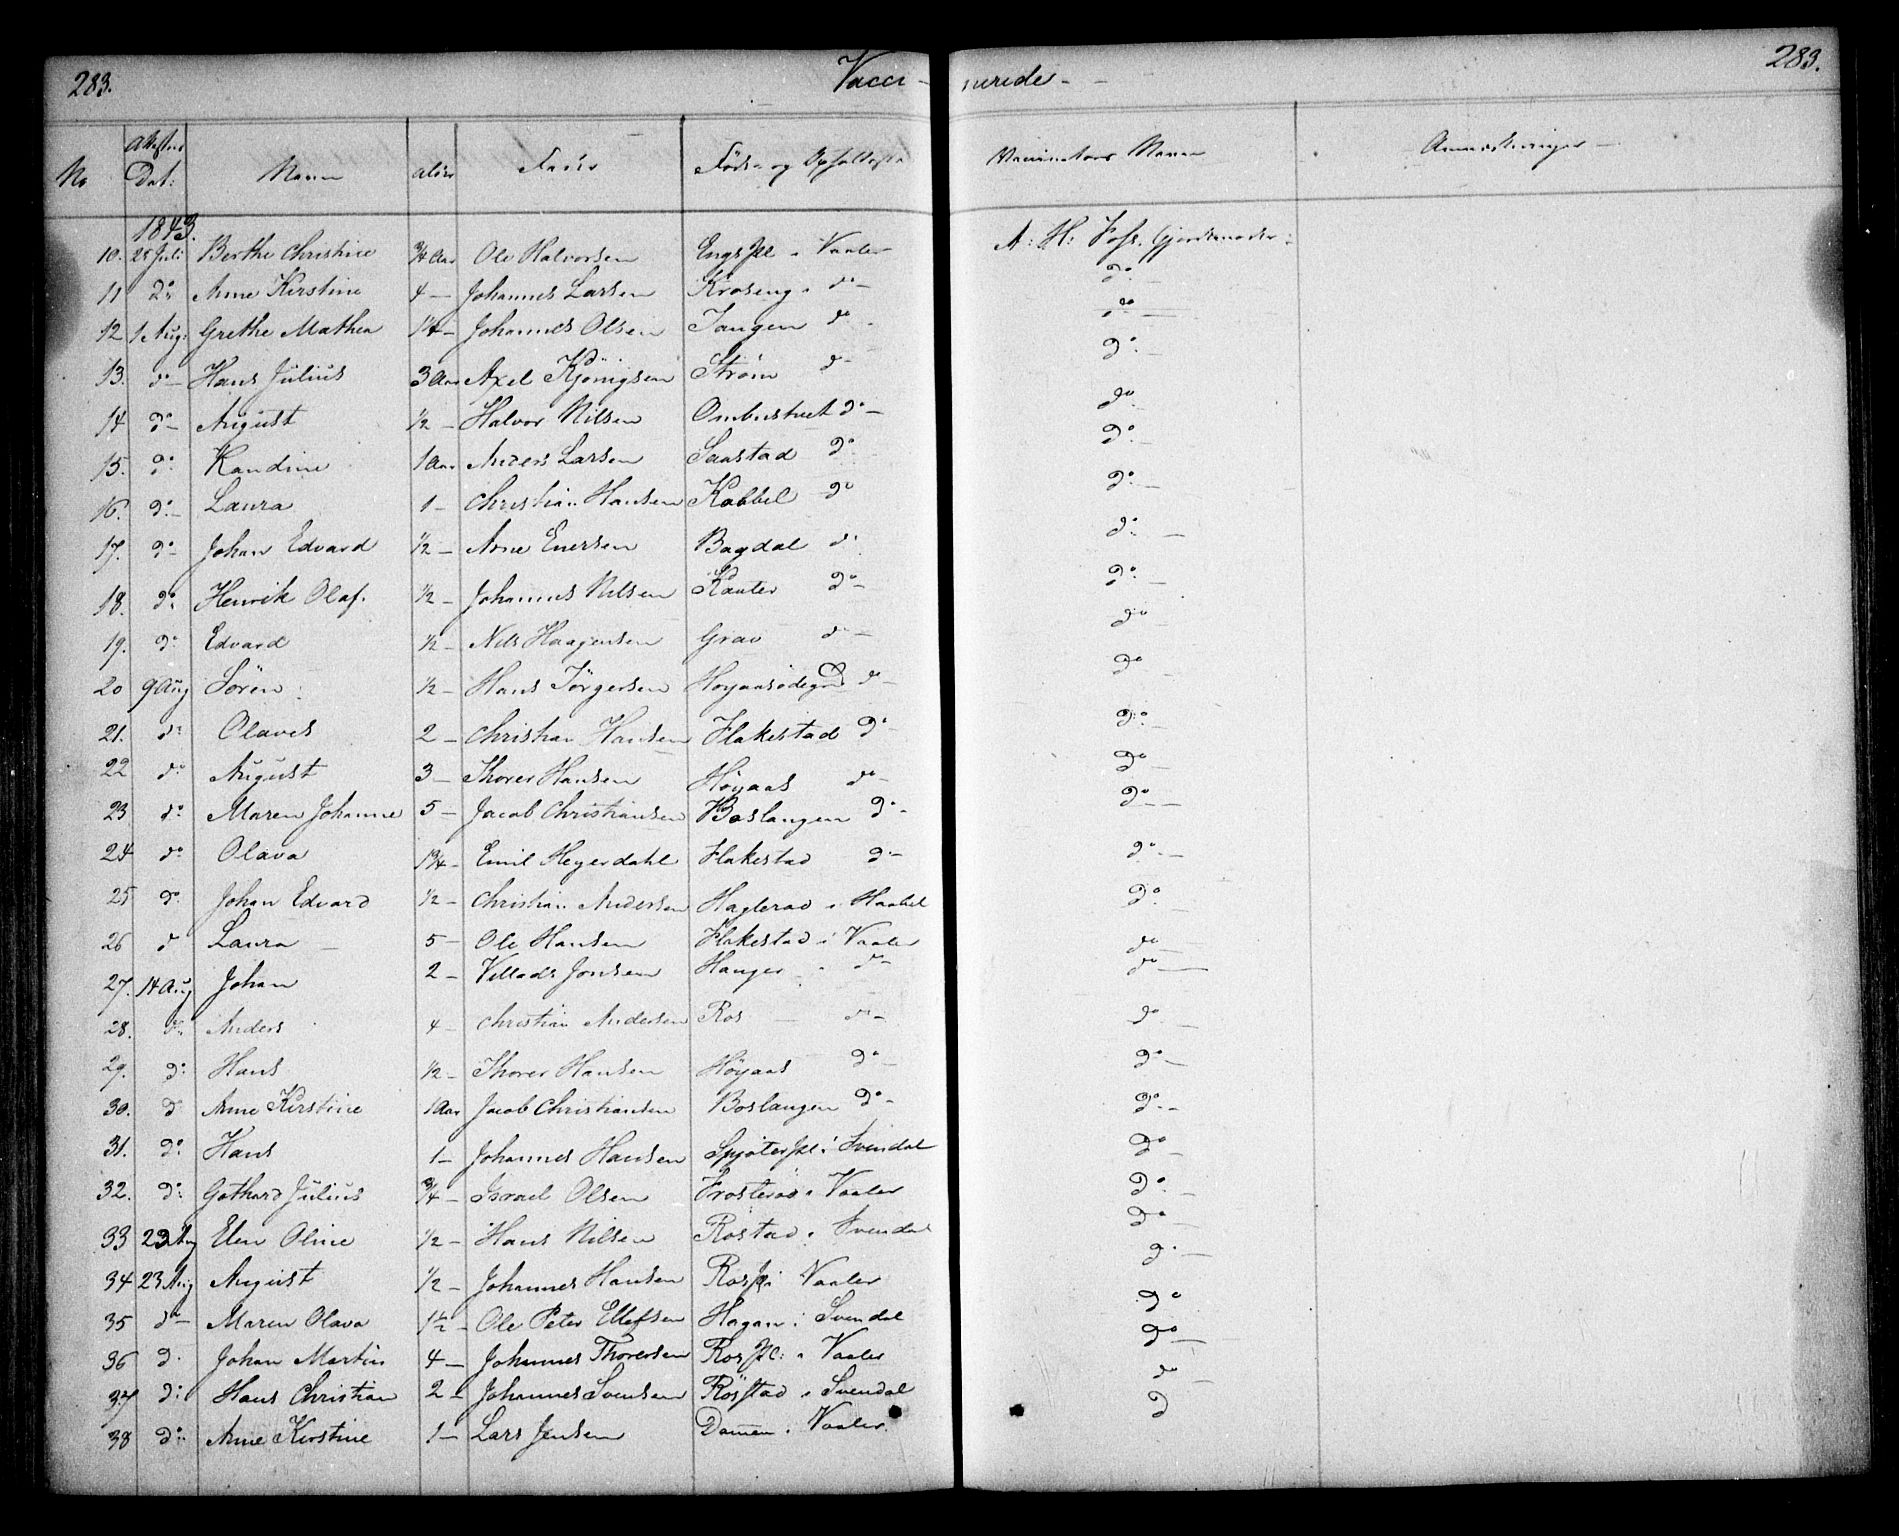 283. Vacci- nerede - 283.
No Attestens Dat: Navn alder Fader Føde- og Opholdssted Vaccinators Navn Anmærkninger
1843.
10. 25 Juli Berthe Christine 3/4 Aar Ole Halvorsen Engs Pl i Vaaler A: H: Foss. Gjordemoder:
11 do Anne Kirstine 4 — Johannes Larsen Kroseng i do — do
12 1 Aug: Grethe Mathea 1 1/4 — Johannes Olsen Tangen do do
13. do — Hans Julius 3 Aar Axel Kjönigsen Strøm do — do
14 do — August 1/2 — Halvor Nilsen Ombustvet do — do
15. do Kandine 1 Aar Anders Larsen Saastad do do
16. do — Laura 1 — Christian Hansen Kabbel do do
17. do — Johan Edvard 1/2 — Arne Enersen Bagdal do do
18. do Henrik Olaf. 1/2 — Johannes Nilsen Kanter do — do
19. do Edvard 1/2 — Nils Haagensen Grav do — do
20 9 Aug Sören 1/2 — Hans Jörgersen Høyaasødegrd do — do
21. do Olaves 2 — Christian Hansen Flakestad do do
22 do August 3 — Thorer Hansen Høyaas do — do
23 do Maren Johanne 5 — Jacob Christiansen Boslangen do — do
24 do Olava 1 3/4 — Emil Heyerdahl Flakestad do — do
25 do Johan Edvard 1/2 — Christian Andersen Haglerød i Haabøl do
26 d Laura — 5 — Ole Hansen Flakestad i Vaaler do
27. 14 Aug Johan 2 — Villads Jonsen Hanger i do — do
28. do Anders 4 — Christian Andersen Ros — do — do
29. do Hans 1/2 — Thorer Hansen Höyaas do — do
30. d Anne Kirstine 1 Aar Jacob Christiansen Boslangen do — do
31. do Hans 1 — Johannes Hansen Spjøter Pl i Svendal do
32. do Gothard Julius 3/4 — Israel Olsen Frosterød i Vaaler do
33 23 Aug Elen Oline 1/2 — Hans Nilsen Röstad i Svendal do
34 23 Aug August 1/2 — Johannes Hansen Ros Pl i Vaaler do
35 do — Maren Olava 1 1/2 — Ole Peter Ellefsen Hagan i Svendal do
36 d. Johan Martin 4 — Johannes Thorersen Ros Pl: i Vaaler do
37 d: Hans Christian 2 — Johannes Svensen Röstad i Svendal do
38 do Anne Kirstine 1 — Lars Jensen Damen i Vaaler d